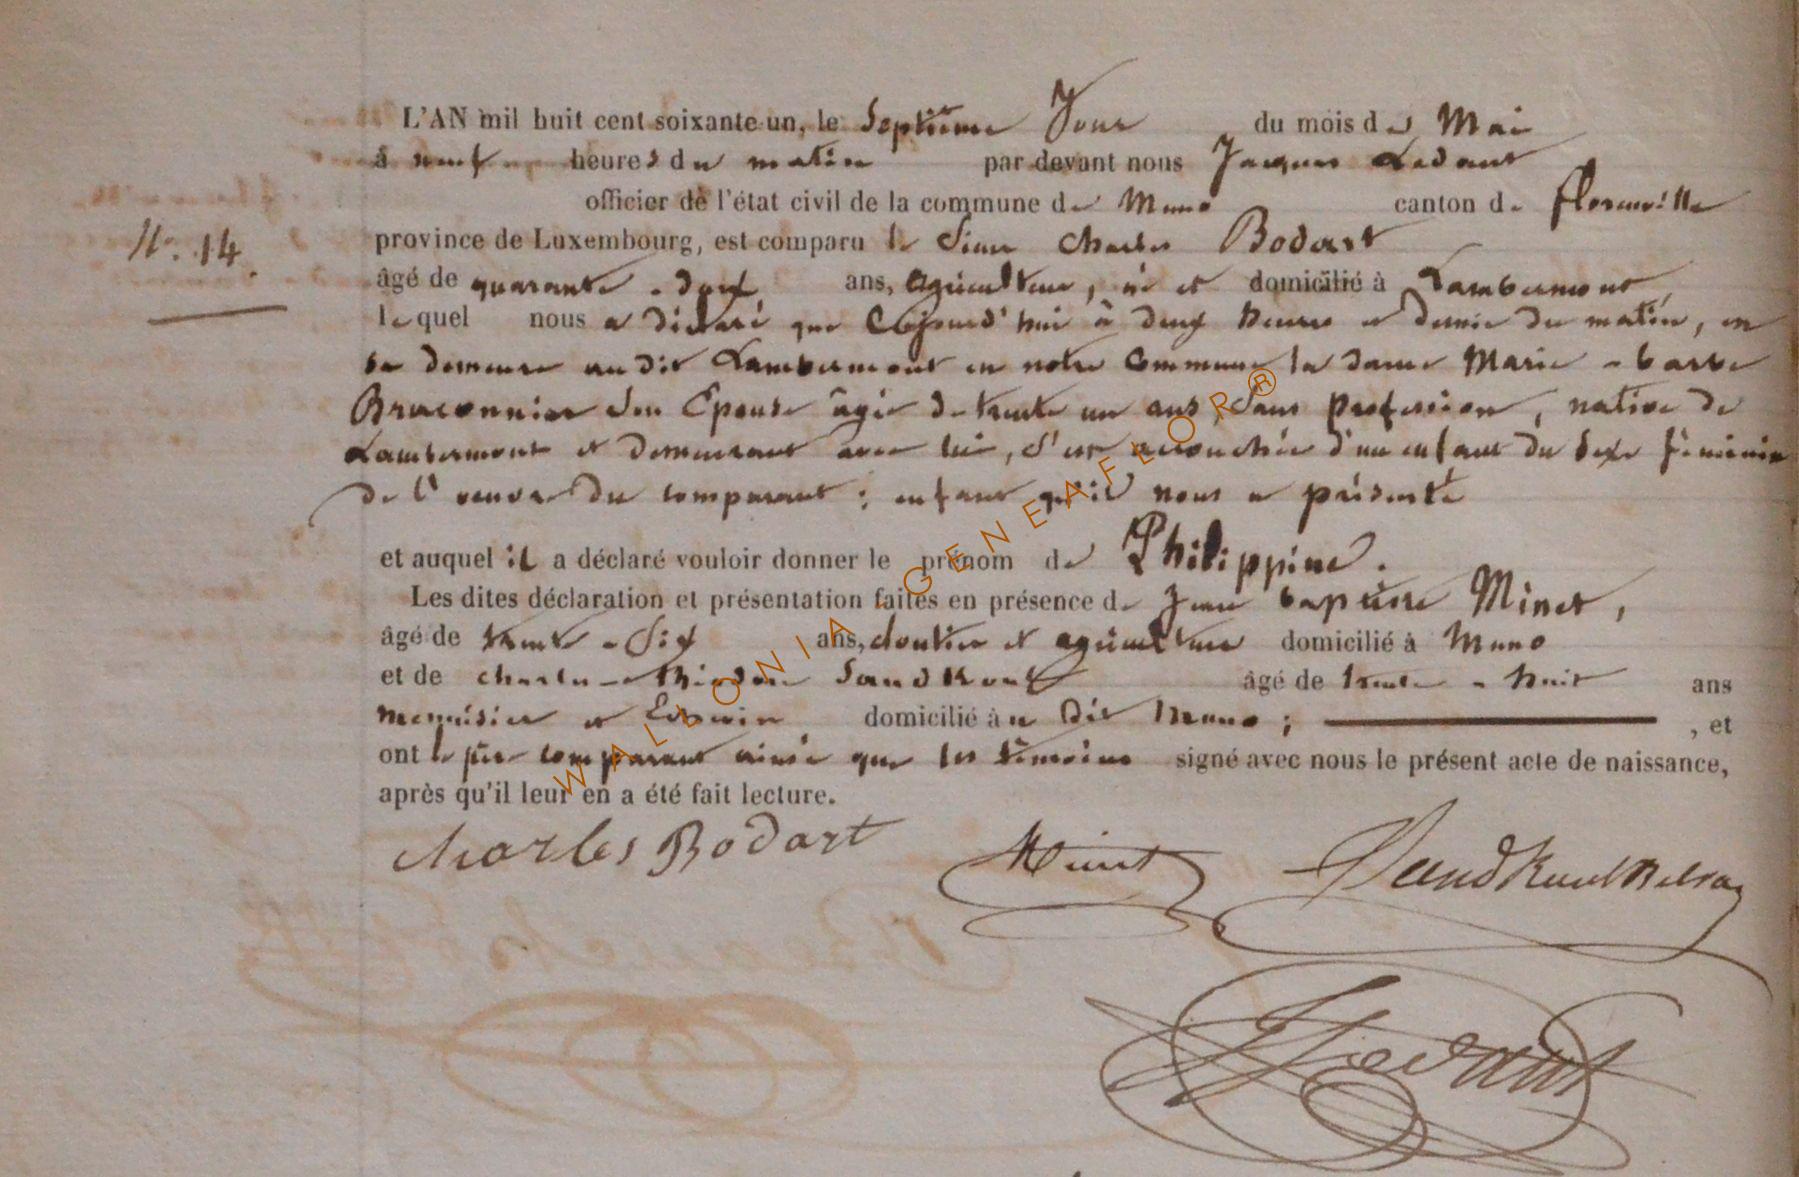 L'AN mil huit cent soixante un, le Septième Jour du mois de Mai
à neuf heures du matin par devant nous Jacques Ledant
officier de l'état civil de la commune de Muno canton de florenville
N°. 14.
province de Luxembourg, est comparu le Sieur Charles Bodart
âgé de quarante-deux ans, agriculteur, né et domicilié à Lambermont,
lequel nous a déclaré que Cejourd'hui à deux heures et demie du matin, en
sa demeure au dit Lambermont en notre Commune la dame Marie-barbe
Braconnier son Epouse âgée de trente un ans, Sans profession, native de
Lambermont et demeurant avec lui, s'est accouchée d'un enfant du Sexe féminin
de l'œuvre du comparant; enfant qu'il nous a présenté
et auquel il a déclaré vouloir donner le prénom de Philippine.
Les dites déclaration et présentation faites en présence de Jean baptiste Minet,
âgé de trente-Six ans, cloutier et agriculteur domicilié à Muno
et de charles-théodore Sandkoul âgé de trente-huit ans
menuisier et Ecrivain domicilié à u dit Muno; , et
ont le père comparant ainsi que les témoins signé avec nous le présent acte de naissance,
après qu'il leur en a été fait lecture.
Charles Bodart Minet
J Ledant
WALLONIA - GENEAFLOR®